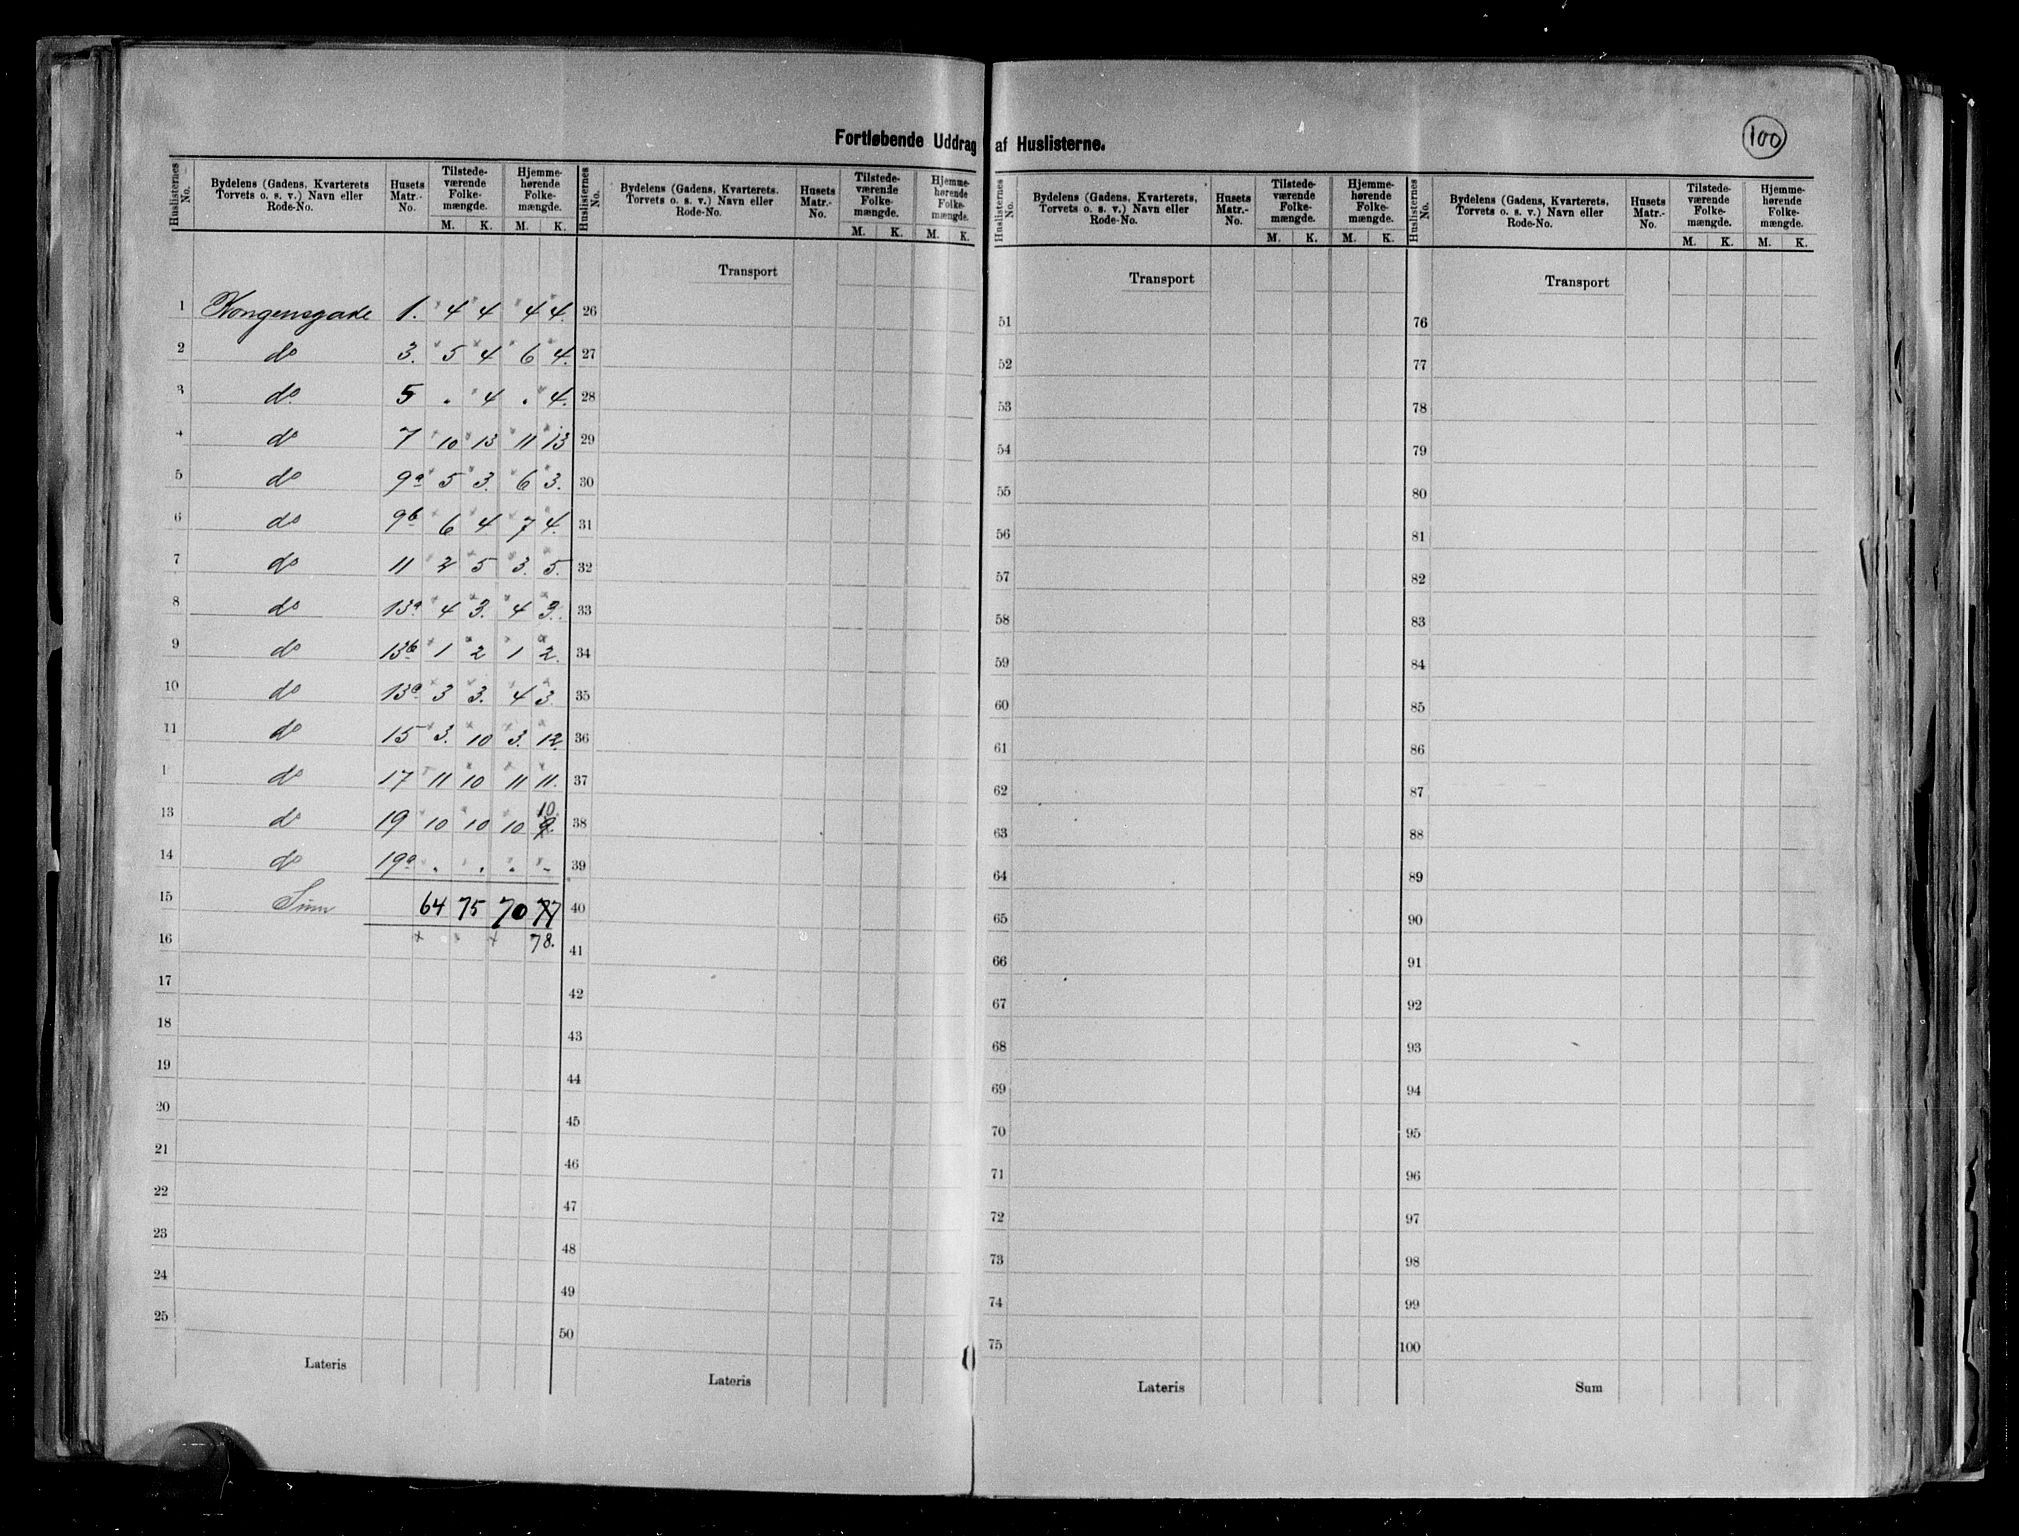 Fortløbende Uddrag af Huslisterne.
100
Huslisternes No. Bydelens (Gadens, Kvarterets Torvets o. s. v.) Navn eller Rode-No. Husets Matr.-No. Tilstede-værende Folke-mængde. M. K. Hjemme-hørende Folke-mængde. M. K.
Huslisternes No. Bydelens (Gadens, Kvarterets. Torvets o. s. v.) Navn eller Rode-No. Husets Matr.-No. Tilstede-værende Folke-mængde. M. K. Hjemme-hørende Folke-mængde. M. K.
Huslisternes No. Bydelens (Gadens, Kvarterets, Torvets o. s. v.) Navn eller Rode-No. Husets Matr.-No. Tilstede-værende Folke-mængde. M. K. Hjemme-hørende Folke-mængde. M. K.
Huslisternes No. Bydelens (Gadens, Kvarterets, Torvets o. s. v.) Navn eller Rode-No. Husets Matr.-No. Tilstede-værende Folke-mængde. M. K. Hjemme-hørende Folke-mængde. M. K.
1 Kongensgade 1. 4 4 4 4.
2 do 3. 5 4 6 4.
3 do. 5 . 4 . 4.
4 do 7 10 13 11 13
5 do 9a 5 3. 6 3.
6 do 9b 6 4 7 4.
7 do 11 2 5 3. 5.
8 do 13a 4 3. 4 3.
9 do 13b 1 2 1 2.
10 do 13a 3 3. 4 3.
11 do 15 3. 10 3. 12
1 do 17 11 10 11 11.
13 do 19 10 10 10 9. 10
14 do 19a . . . -
15 Sum 64 75 70 77
16 78.
17
18
19
20
21
22
23
24
25
Lateris
Transport
26
27
28
29
30
31
32
33
34
35
36
37
38
39
40
41
42
43
44
45
46
47
48
49
50
Lateris
Transport
51
52
53
54
55
56
57
58
59
60
61
62
63
64
65
66
67
68
69
70
71
72
73
74
75
Lateris
Transport
76
77
78
79
80
81
82
83
84
85
86
87
88
89
90
91
92
93
94
95
96
97
98
99
100
Sum